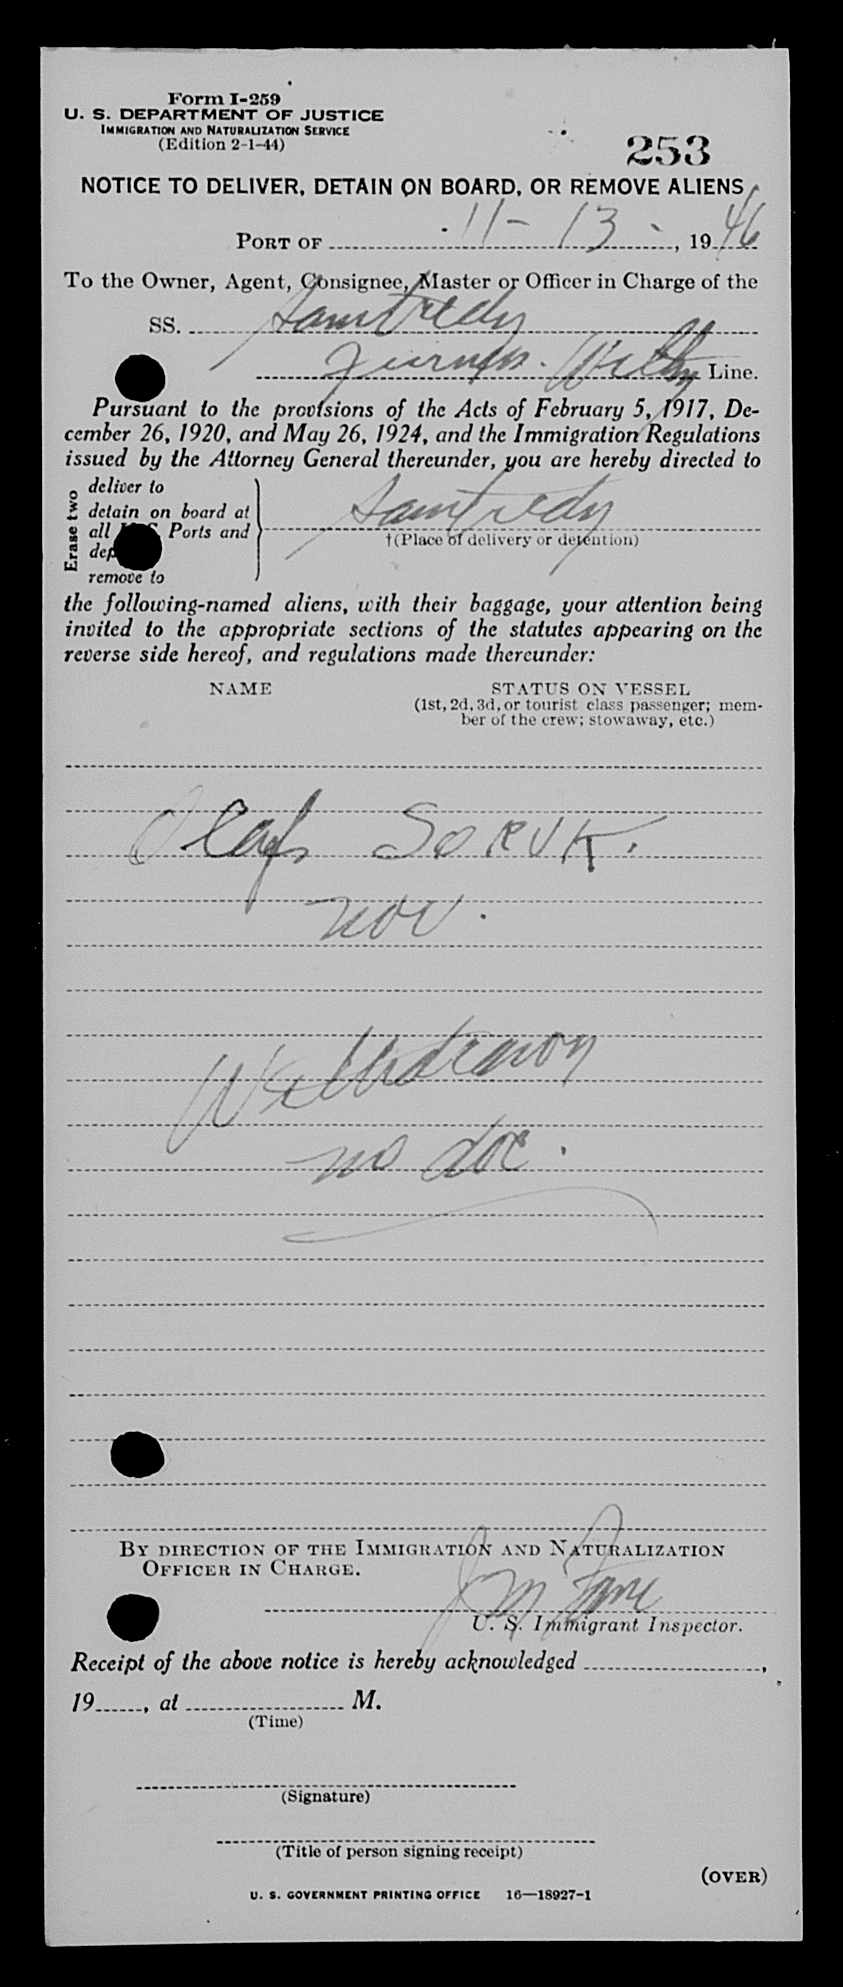 Form I-259
U. S. DEPARTMENT OF JUSTICE
IMMIGRATION AND NATURALIZATION SERVICE
(Edition 2-1-44)
253
NOTICE TO DELIVER, DETAIN ON BOARD, OR REMOVE ALIENS
PORT OF 11-13-, 1946
To the Owner, Agent, Consignee, Master or Officer in Charge of the
SS. Samtredy
Withy Line.
Pursuant to the provisions of the Acts of February 5, 1917, De-
cember 26, 1920, and May 26, 1924, and the Immigration Regulations
issued by the Attorney General thereunder, you are hereby directed to
Erase two
deliver to
detain on board at
all Ports and
remove to
Samtredy
†(Place of delivery or detention)
the following-named aliens, with their baggage, your attention being
invited to the appropriate sections of the statutes appearing on the
reverse side hereof, and regulations made thereunder:
NAME STATUS ON VESSEL
(1st, 2d, 3d, or tourist class passenger; mem-
ber of the crew; stowaway, etc.)
Olaf SORVK.
nov.
no doc.
BY DIRECTION OF THE IMMIGRATION AND NATURALIZATION
OFFICER IN CHARGE.
U. S. Immigrant Inspector.
Receipt of the above notice is hereby acknowledged ,
19 , at M.
(Time)
(Signature)
(Title of person signing receipt)
(OVER)
U. S. GOVERNMENT PRINTING OFFICE 16—18927-1